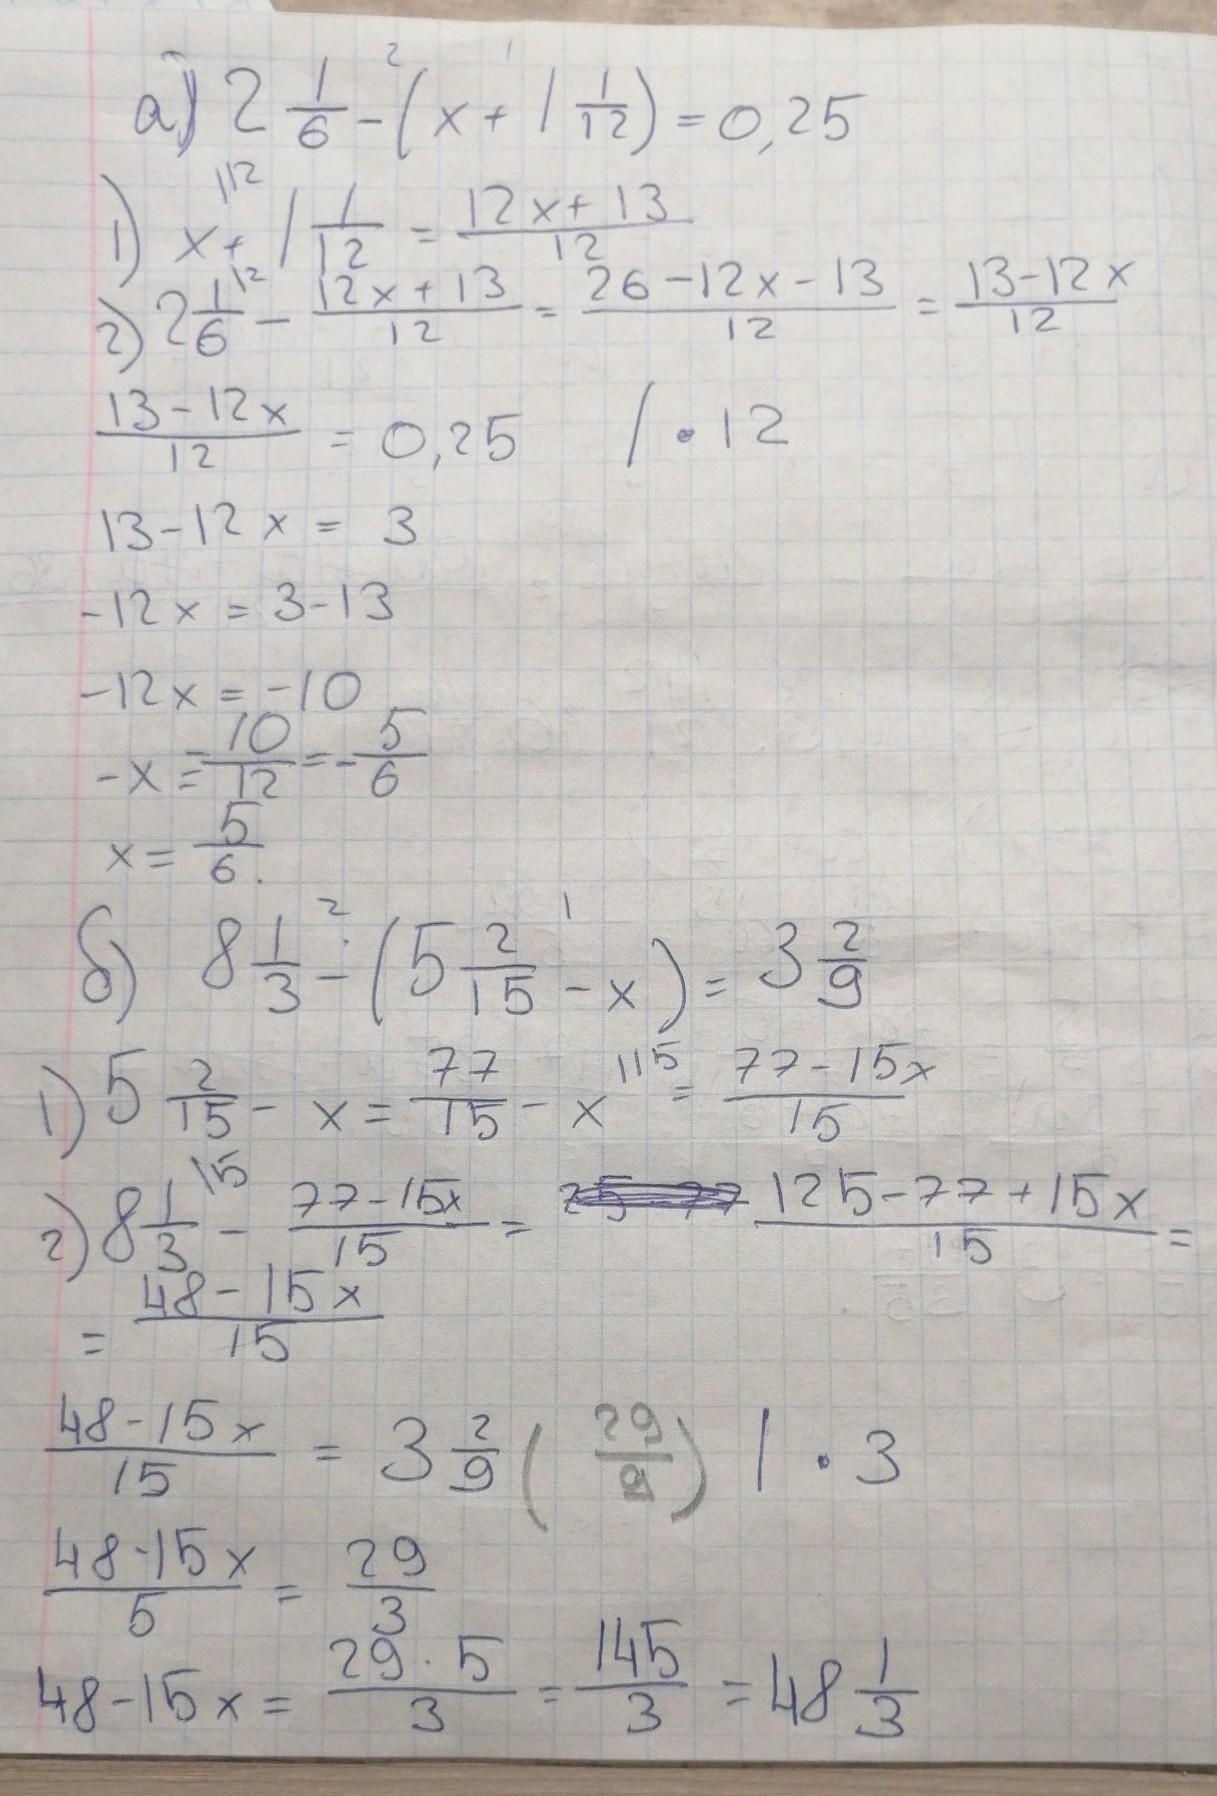 а) 2 1/6 - (x + 1 1/12) = 0,25
1) x + 1 1/12 = (12x + 13)/12
2) 2 1/6 - (12x + 13)/12 = (26 - 12x - 13)/12 = (13 - 12x)/12
(13 - 12x)/12 = 0,25 / · 12
13 - 12x = 3
-12x = 3 - 13
-12x = -10
-x = -10/12 = -5/6
x = 5/6.
б) 8 1/3 - (5 2/15 - x) = 3 2/9
1) 5 2/15 - x = 77/15 - x = (77 - 15x)/15
2) 8 1/3 - (77 - 15x)/15 = (125 - 77 + 15x)/15 =
= (48 - 15x)/15
(48 - 15x)/15 = 3 2/9 (29/9) | · 3
(48 - 15x)/5 = 29/3
48 - 15x = (29 · 5)/3 = 145/3 = 48 1/3